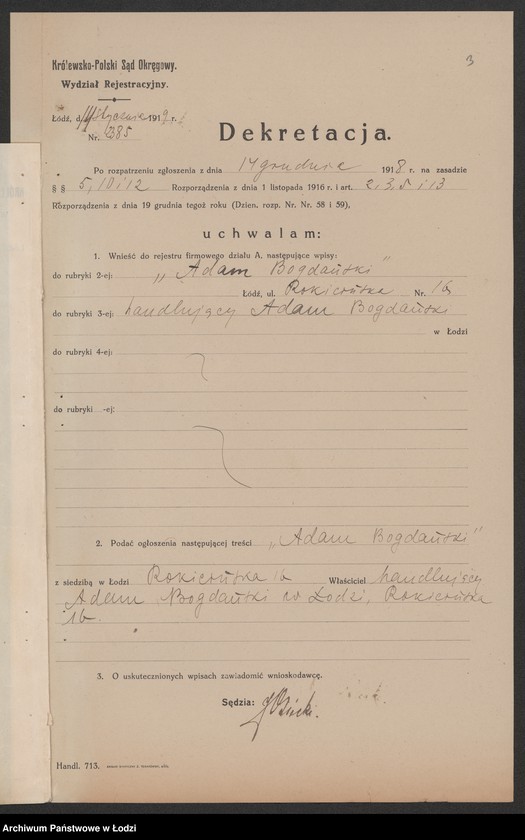 3
Królewsko-Polski Sąd Okręgowy.
Wydział Rejestracyjny.
Łódź, d. stycznia 1919 r.
Nr. 385
Dekretacja.
Po rozpatrzeniu zgłoszenia z dnia 14 grudnia 1918 r. na zasadzie
§ § 5, 10 i 12 Rozporządzenia z dnia 1 listopada 1916 r. i art. 2, 3, 5 i 13
Rozporządzenia z dnia 19 grudnia tegoż roku (Dzien. rozp. Nr. Nr. 58 i 59),
uchwalam:
1. Wnieść do rejestru firmowego działu A, następujące wpisy:
do rubryki 2-ej: „Adam Bogdański"
Łódź, ul. Rokicińska Nr. 16
do rubryki 3-ej: handlujący Adam Bogdański
w Łodzi
do rubryki 4-ej:
do rubryki -ej:
2. Podać ogłoszenia następującej treści „Adam Bogdański"
z siedzibą w Łodzi Rokicińska 16 Właściciel handlujący
Adam Bogdański w Łodzi, Rokicińska
16.
3. O uskutecznionych wpisach zawiadomić wnioskodawcę.
Sędzia:
Handl. 713.
Archiwum Państwowe w Łodzi